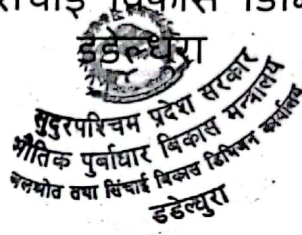 सिंचाई विकास डिभि
डडेल्धुरा
सुदुरपश्चिम प्रदेश सरकार
भौतिक पुर्वाधार बिकास मन्त्रालय
जलस्रोत तथा सिंचाई बिकास डिभिजन कार्यालय
डडेल्धुरा